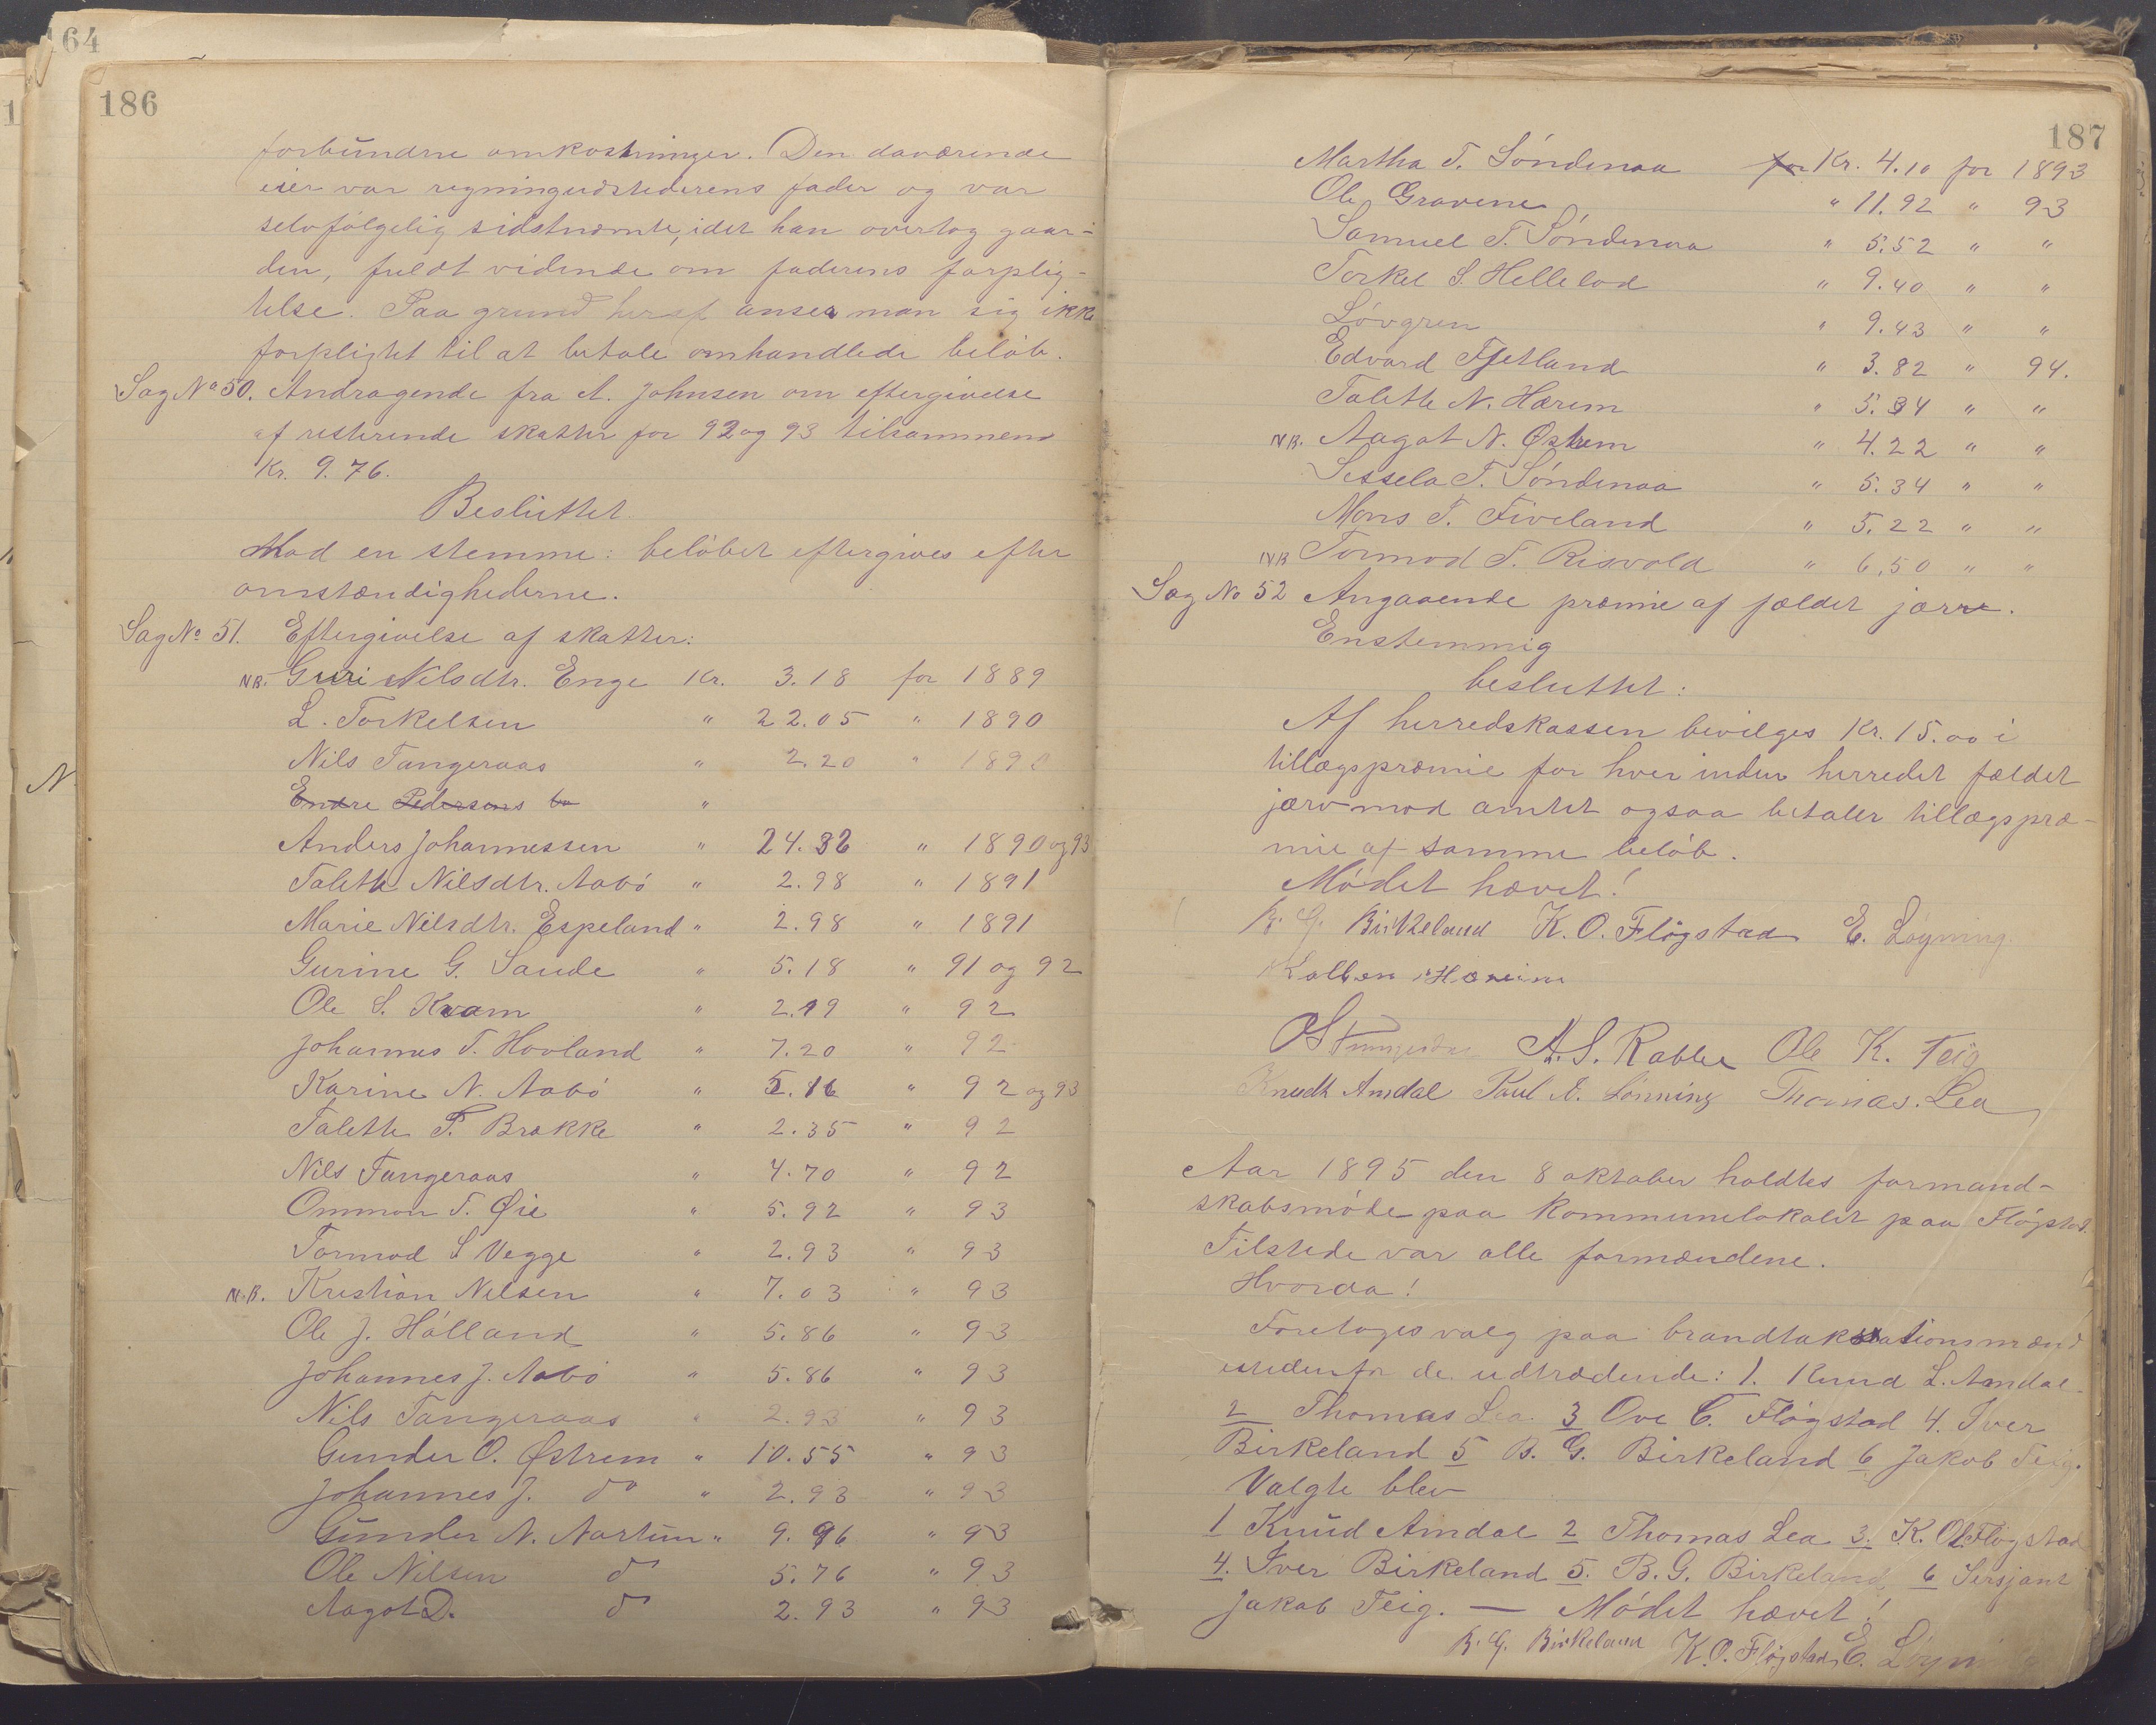 164
186
forbundne omkostninger. Den daværende
eier var regningudstederens fader og var
selvfølgelig sidstnæmte, idet han overtog gaar-
den, fuldt vidende om faderens forplig-
telse. Paa grund heraf anser man sig ikke
forpligtet til at betale omhandlede beløb.
Sag No 50. Andragende fra A. Johnsen om eftergivelse
af resterende skatter for 92 og 93 tilsammen
Kr. 9.76.
Besluttet
Mod en stemme: beløbet eftergives efter
omstændighederne.
Sag No 51. Eftergivelse af skatter:
NB. Guri Nilsdtr. Enge Kr. 3.18 for 1889
L. Torkelsen " 22.05 " 1890
Nils Tangeraas " 2.20 " 1890
Endre Pedersens bo "
Anders Johannessen " 24.32 " 1890 og 93
Talette Nilsdtr. Aabó " 2.98 " 1891
Marie Nilsdtr. Espeland " 2.98 " 1891
Gurine G. Sande " 5.18 " 91 og 92
Ole S. Kvam " 2.19 " 92
Johannes T. Hovland " 7.20 " 92
Karine N. Aabó " 5.16 " 92 og 93
Talette T. Brakke " 2.35 " 92
Nils Tangeraas " 4.70 " 92
Ommon T. Øie " 5.92 " 93
Tormod S Vegge " 2.93 " 93
N.B. Kristian Nilsen " 7.03 " 93
Ole J. Hålland " 5.86 " 93
Johannes J. Aabó " 5.86 " 93
Nils Tangeraas " 2.93 " 93
Gunder O. Østrem " 10.55 " 93
Johannes J. do " 2.93 " 93
Gunder N. Nartün " 9.96 " 93
Ole Nilsen do 5.76 " 93
Aagot D. do 2.93 " 93
187
Martha T. Söndenaa for Kr. 4.10 for 1893
Ole Gravene " 11.92 " 93
Samuel T. Söndenaa " 5.52 " "
Torkel S. Hellelod " 9.40 " "
Lövgren " 9.43 " "
Edvard Fjetland " 3.82 " 94.
Talette N. Hærem " 5.34 " "
NB. Aagot N. Østrem " 4.22 " "
Sessela T. Söndenaa " 5.34 " "
Mons T. Fiveland " 5.22 " "
NB Tormod T. Risvold " 6.50 " "
Sag No 52 Angaaende præmie af fældet jærv.
Enstemmig
besluttet:
Af herredskassen bevilges Kr. 15.00 i
tillægspræmie for hver inden herredet fældet
jærv mod amtet ogsaa betaler tillægspræ-
mie af samme beløb.
Mödet hævet!
B. G. Birkeland K. O. Fløgstad E. Løyning
Kolben Hæreim
A. S. Rabbe Ole K. Teig
Knudt Amdal Paul A. Lönning Thomas. Lea
Aar 1895 den 8 oktober holdtes formand-
skabsmöde paa Kommunelokalet paa Flögstad.
Tilstede var alle formændene.
Hvorda!
Foretoges valg paa brandtakstationsmænd
istedenfor de udtrædende: 1. Knud L. Amdal
2 Thomas Lea 3 Ove C. Flögstad 4. Iver
Birkeland 5 B. G. Birkeland 6 Jakob Teig.
Valgte blev
1 Knüd Amdal 2 Thomas Lea 3. K. O. Flogstad
4. Iver Birkeland 5. B. G. Birkeland 6 Sersjant
Jakob Teig. — Mödet hævet!
B. G. Birkeland K. O. Fløgstad E. Løyning